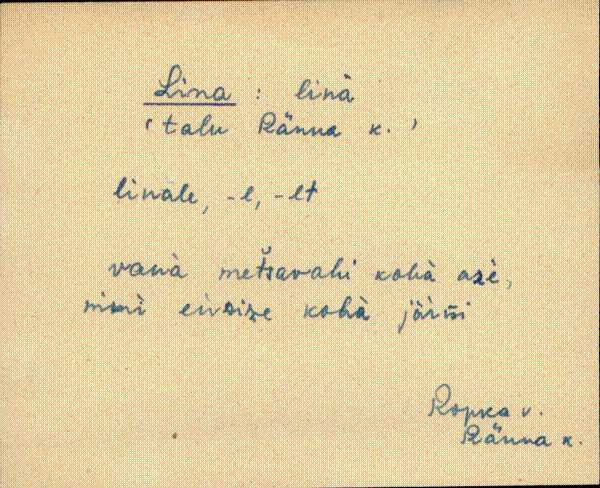 Lina : linà
‘talu Ränna k.’
linàle, -l, -lt
vanà metsavahi kohà asè,
nimi kohà
Ropka v.
Ränna k.